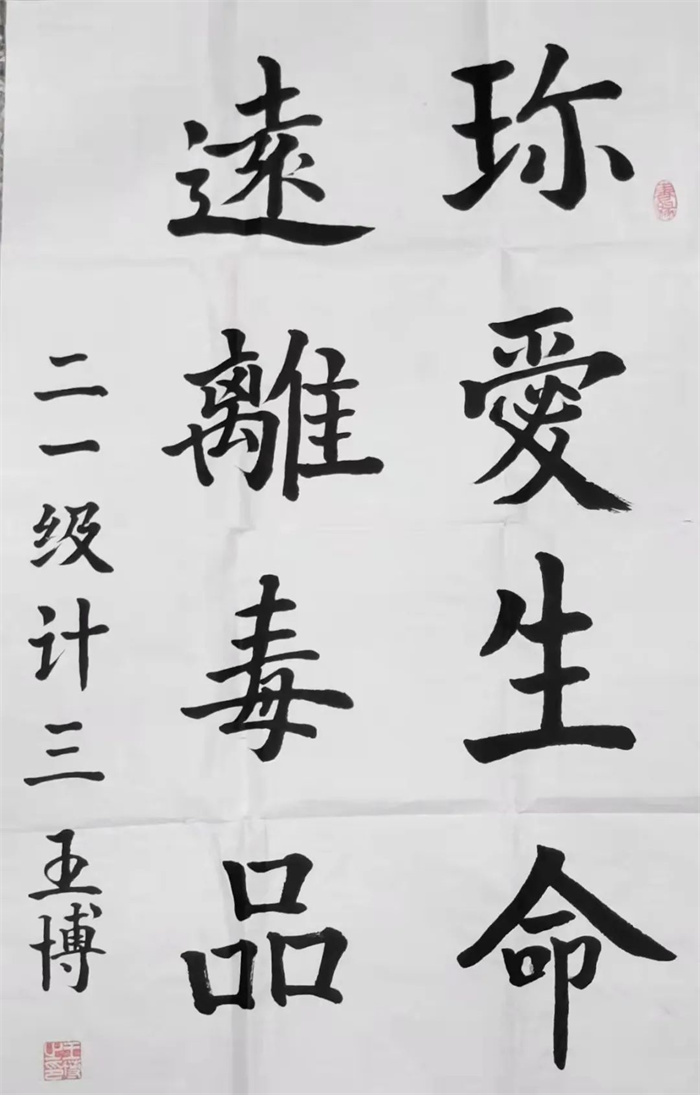 珎愛生命
遠離毒品
二一级计三王博